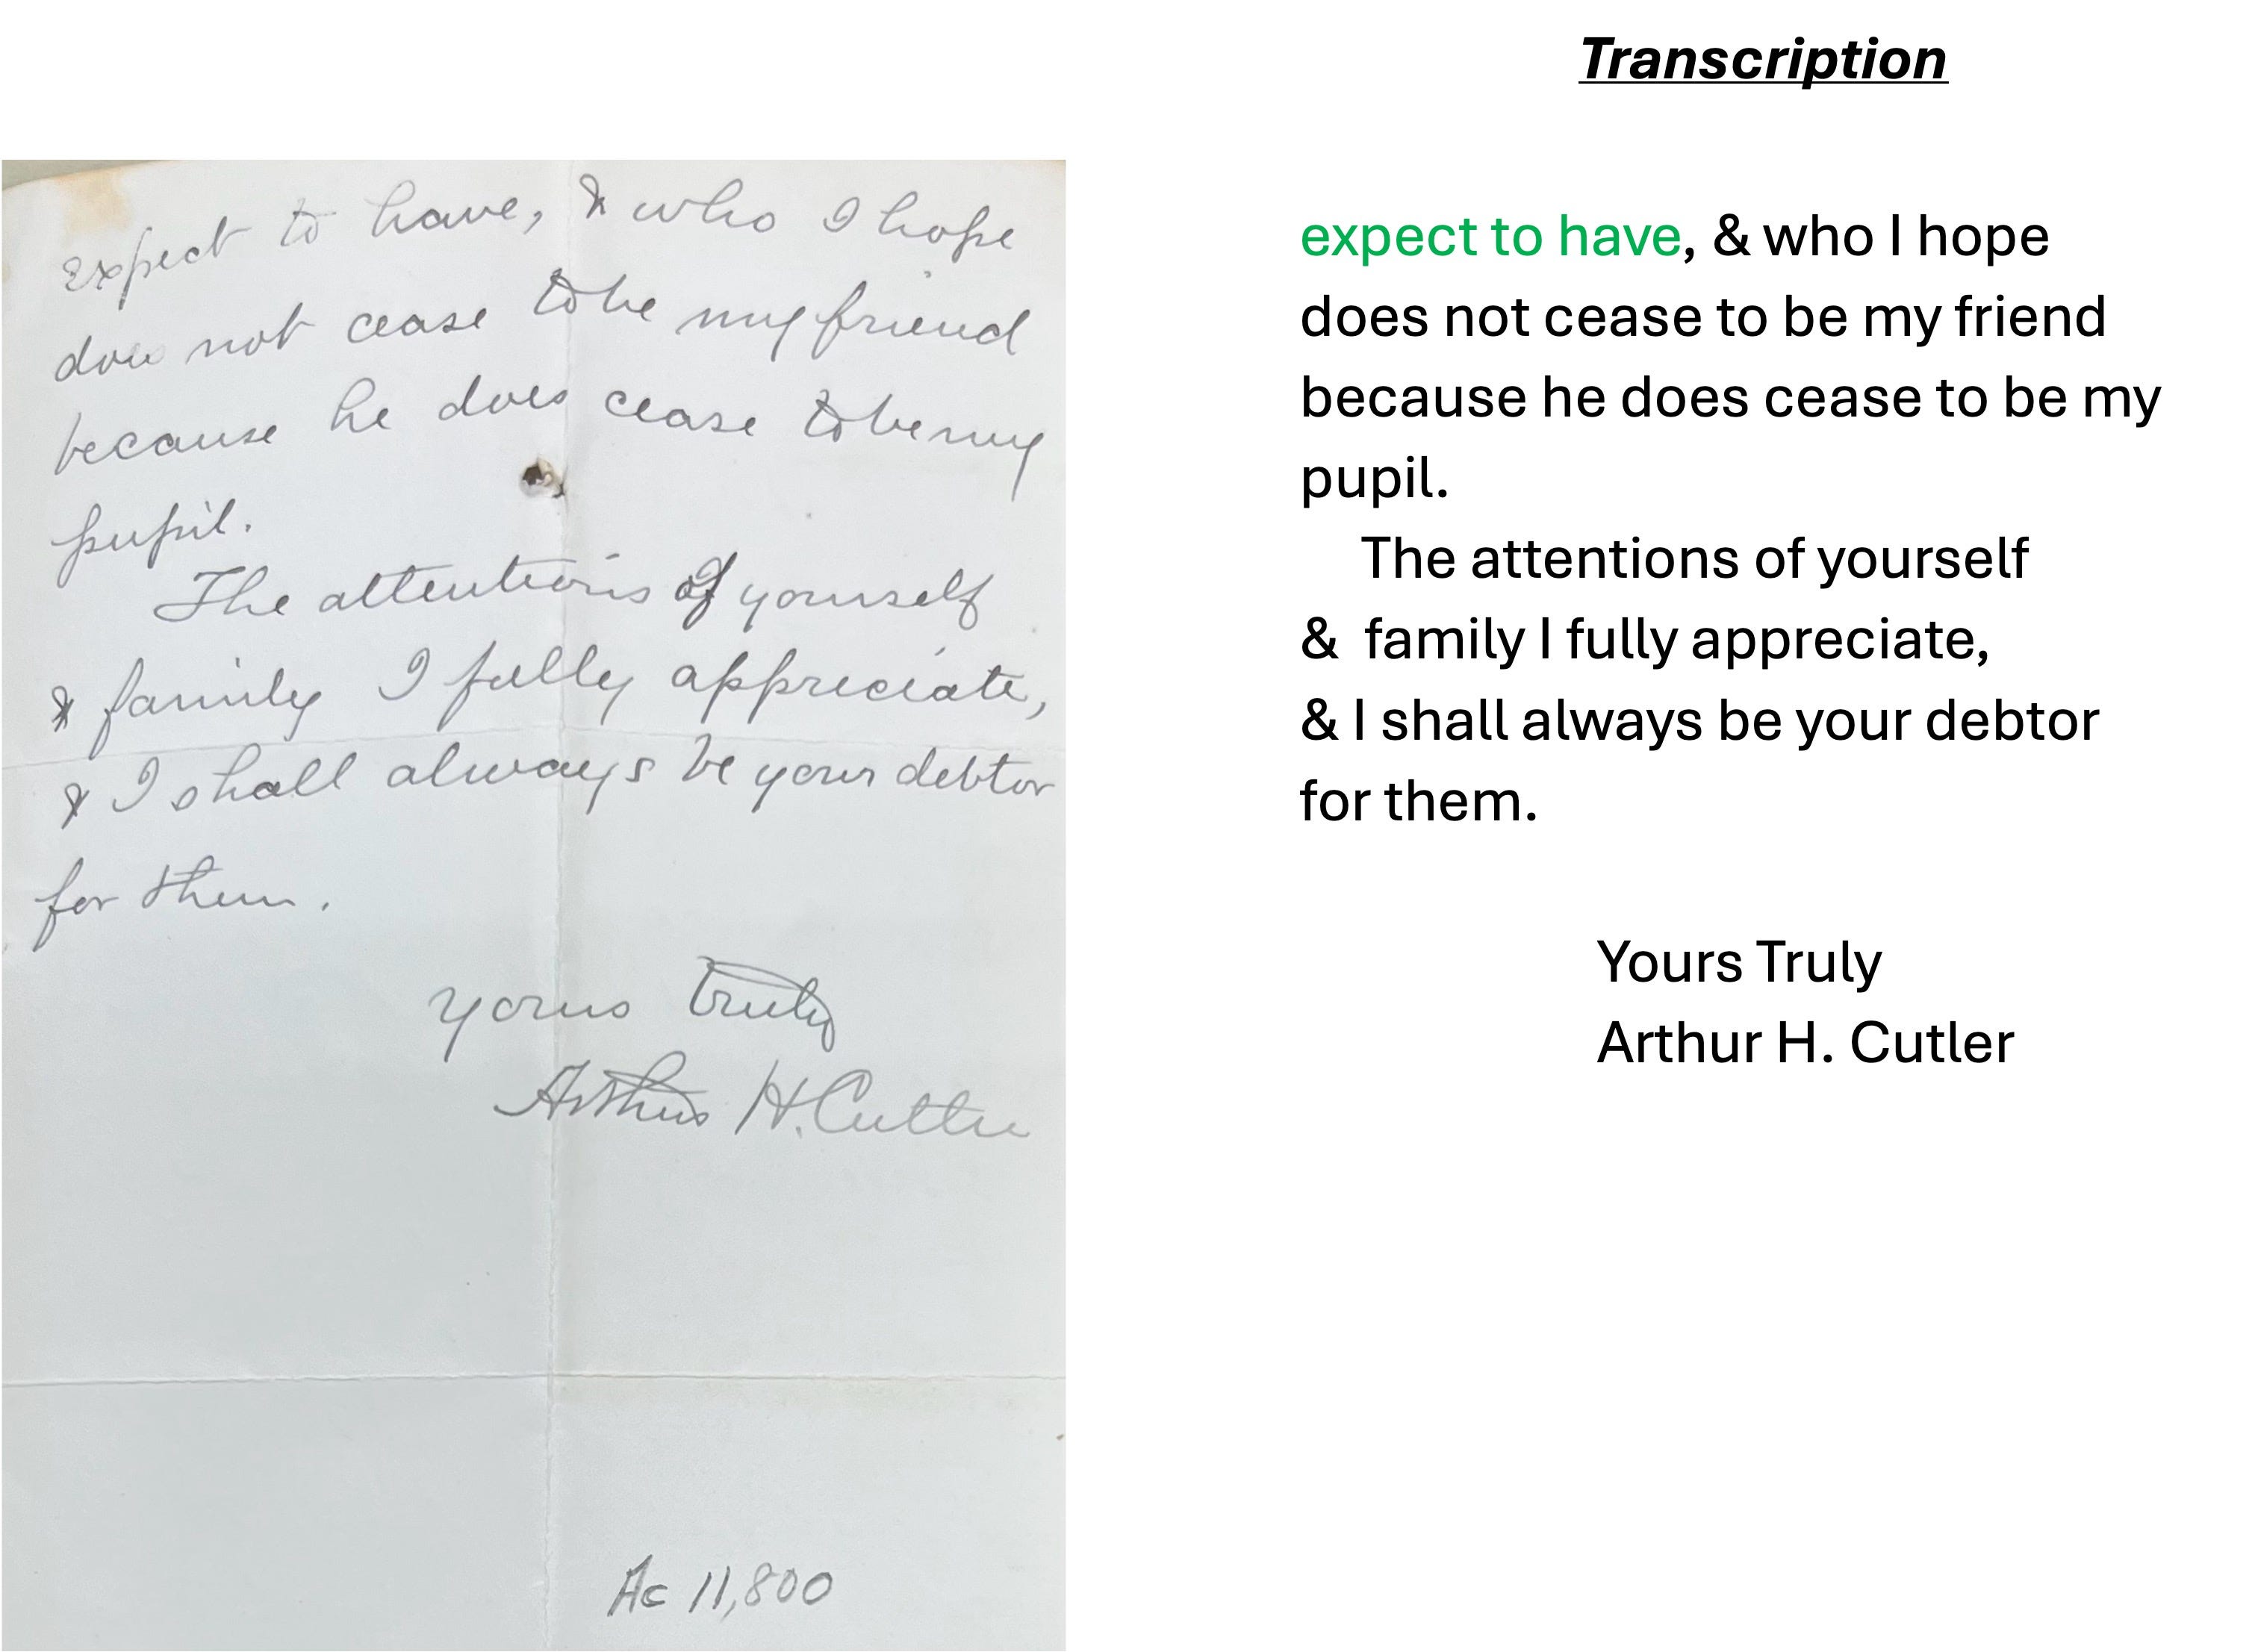 expect to have, & who I hope
does not cease to be my friend
because he does cease to be my
pupil.
The attentions of yourself
& family I fully appreciate,
& I shall always be your debtor
for them.
Yours truly
Arthur H. Cutler
Ac 11,800
Transcription
expect to have, & who I hope
does not cease to be my friend
because he does cease to be my
pupil.
The attentions of yourself
& family I fully appreciate,
& I shall always be your debtor
for them.
Yours Truly
Arthur H. Cutler